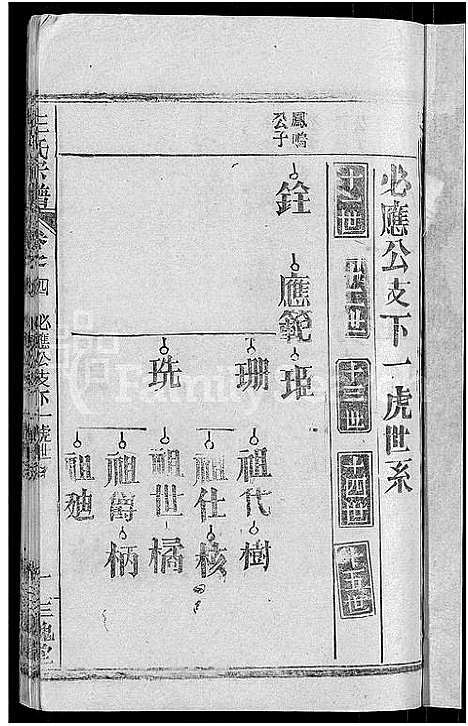 必應公支下一虎世系
十一世
十二世
十三世
十四世
十五世
鳳鳴
公子
銓
應範
珊
珗
祖代
樹
祖仕
核
祖世
橘
祖爵
柄
祖廸
王氏宗譜
必應公支下一虎世系
三槐堂